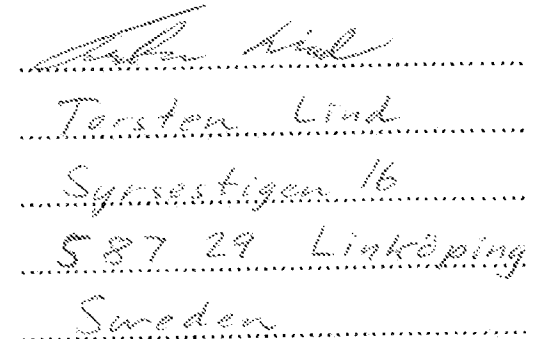 Torsten Lind
Syrsestigen 16
587 29 Linköping
Sweden